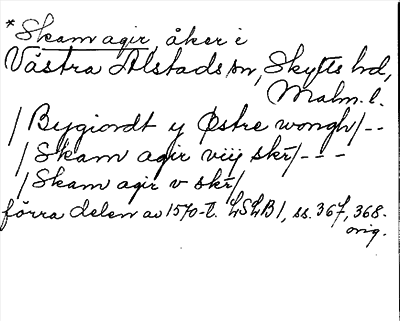 *Skam agir, åker i
Västra Alstads sn, Skytts hd,
Malm. l.
/ Bygiordt y Østre wongh/--
/ Skam agir viij skr̄/---
/ Skam agir v skr̄/
förra delen av 1570-t. LSLB 1, ss. 367, 368.
orig.